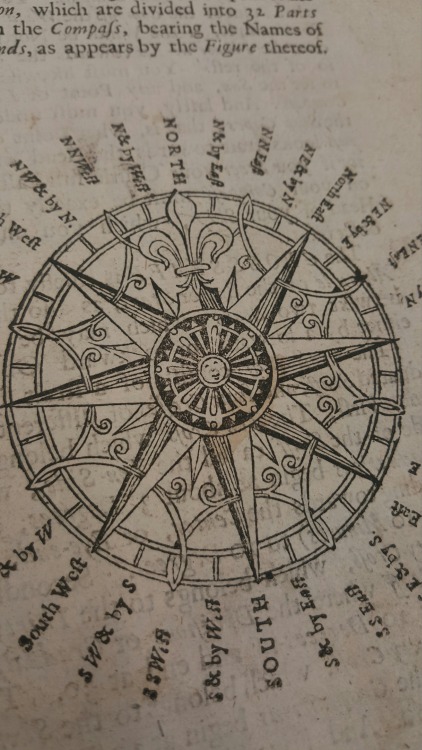 on, which are divided into 32 Parts
n the Compaſs, bearing the Names of
nds, as appears by the Figure thereof.
NORTH
N & by Eaſt
NNEaſt
NE & by N
North Eaſt
NE & by E
ENEaſt
Eaſt
E & by S.
SSEaſt
S & by Eaſt
SOUTH
S & by Weſt
SSWeſt
SW & by S
South Weſt
& by W
W
h Weſt
NW & by N.
NNWeſt
N & by Weſt